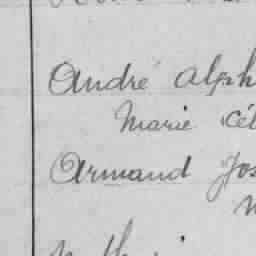 André Alph
Marie Cél
Armand Jos